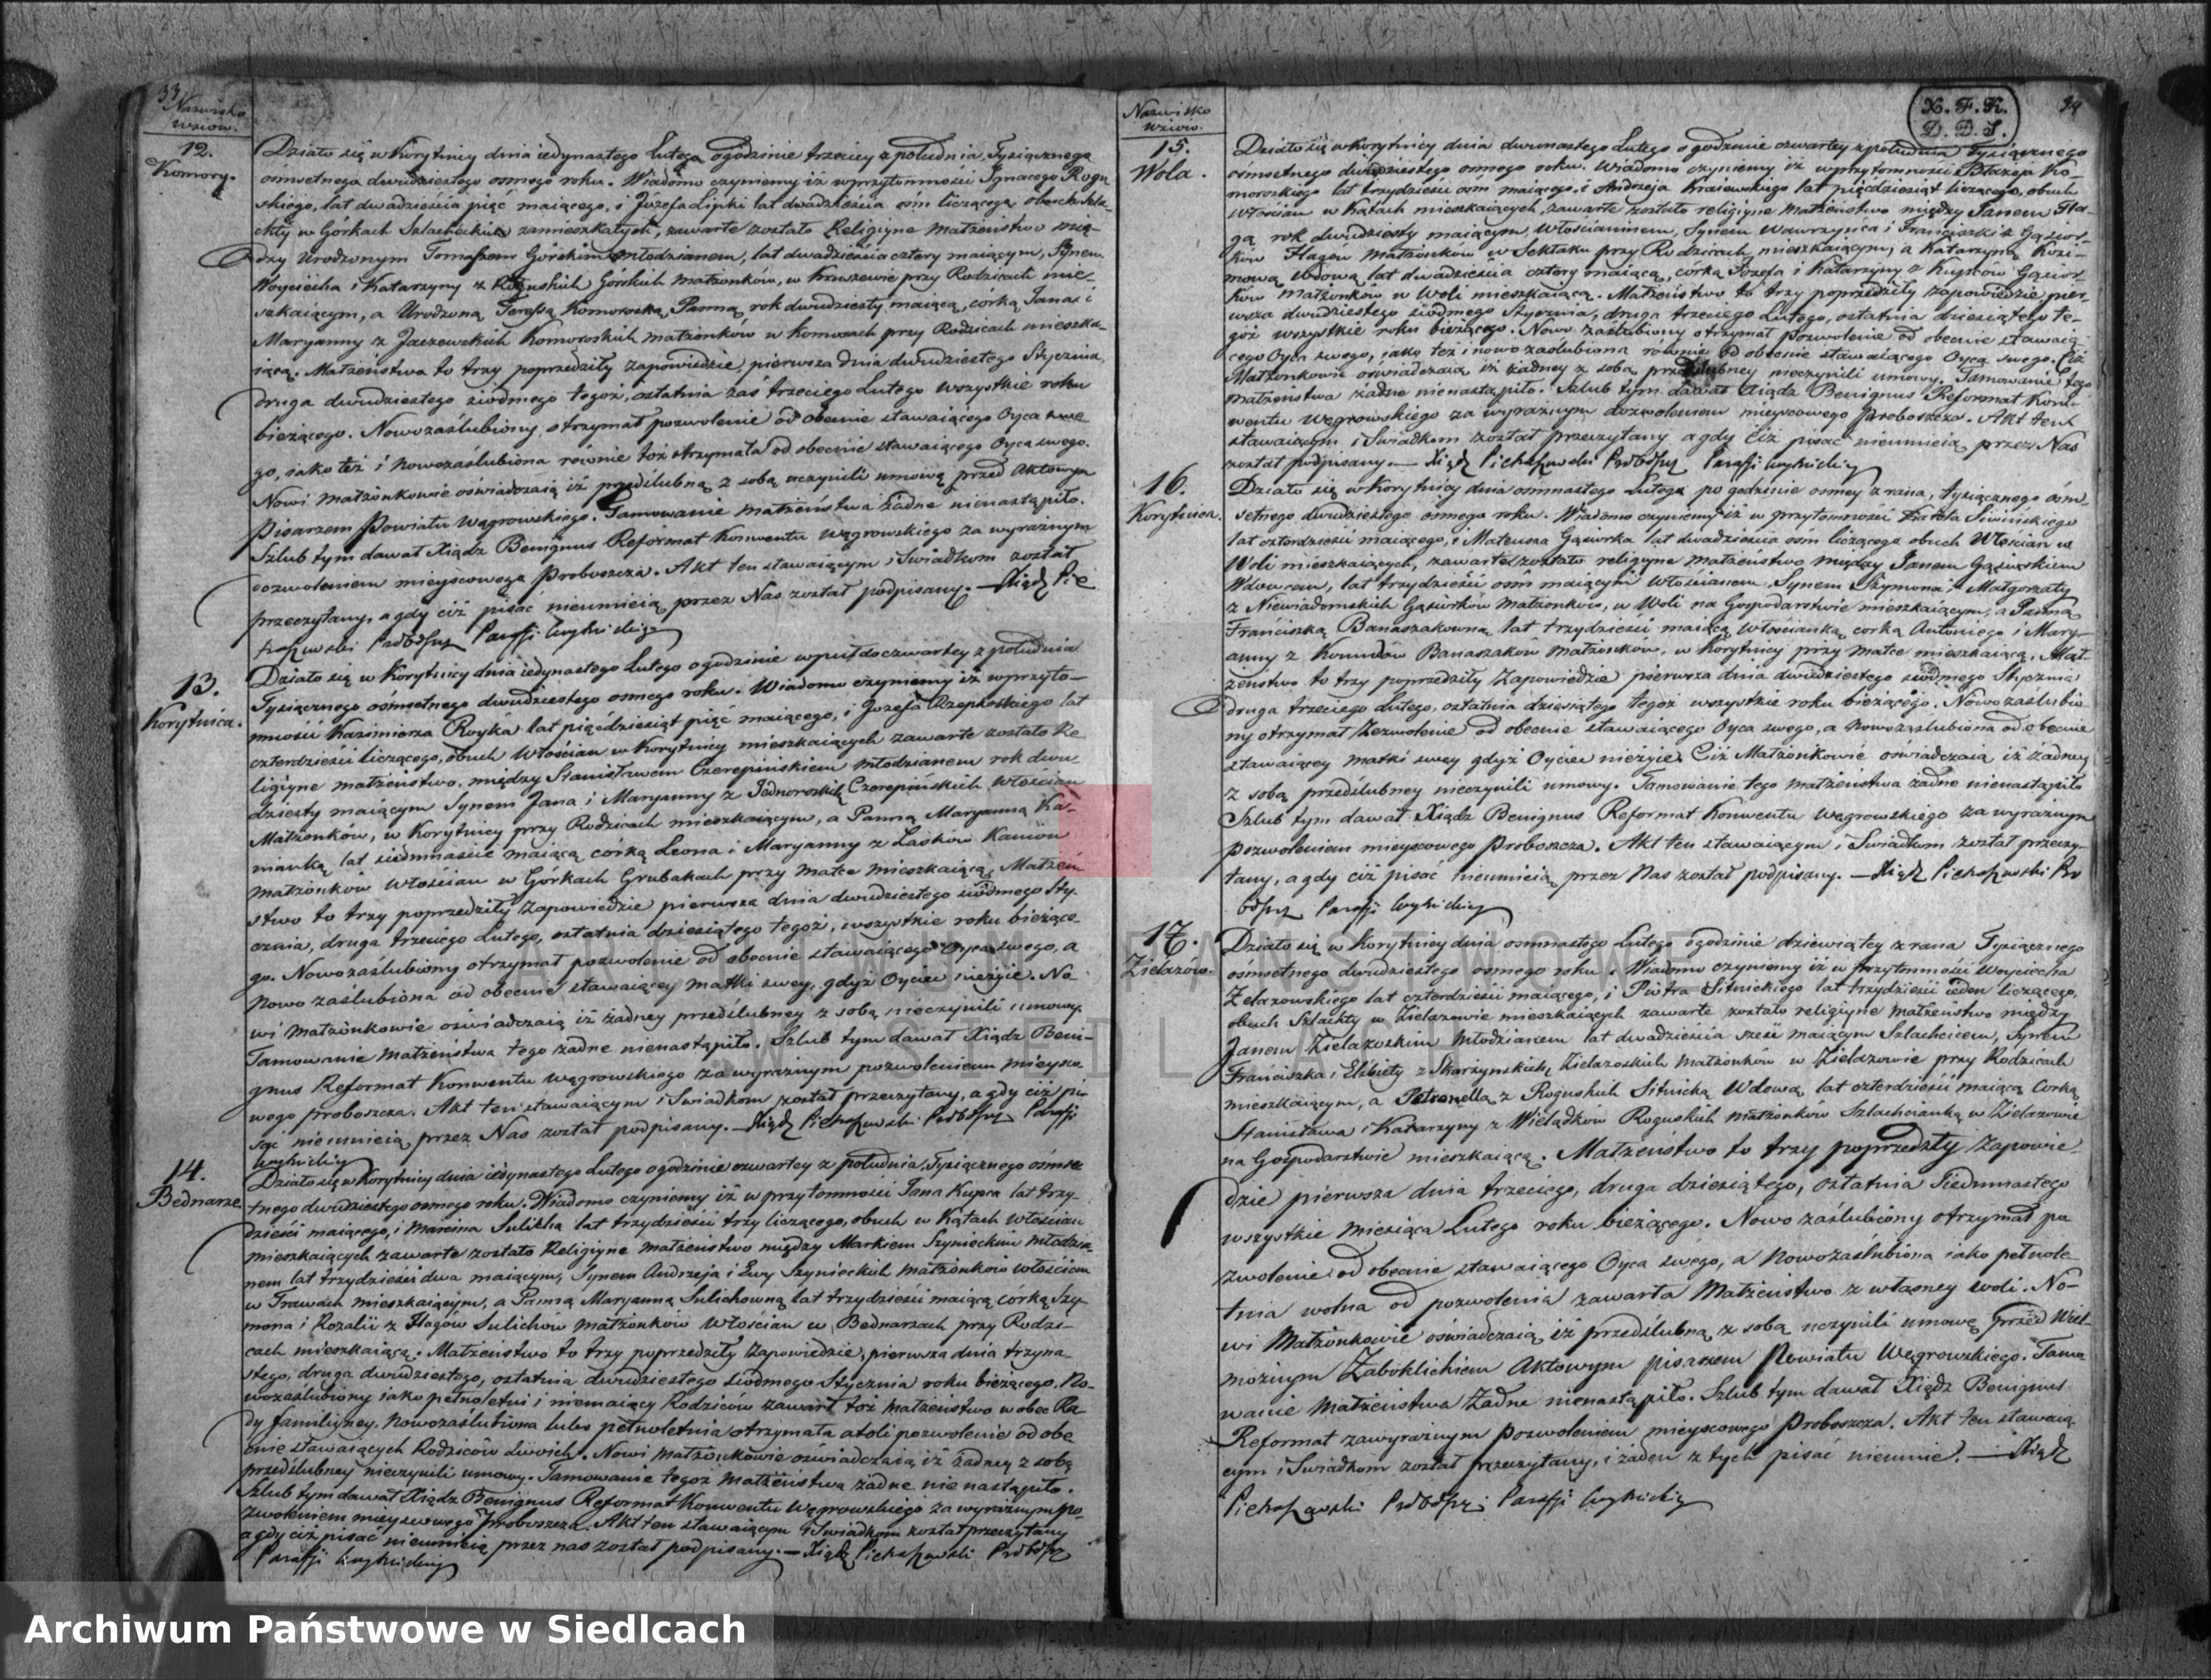 33
Nazwisko
wsiow.
12.
Komory.
Działo się w Korytnicy dnia iedynastego Lutego o godzinie trzeciey z południa, Tysiącznego
osmsetnego dwudziestego osmego roku. Wiadomo czyniemy iż w przytomności Ignacego Rogu
skiego, lat dwadzieścia pięć maiącego, i Józefa Lipki lat dwadzieścia osm liczącego obuch szla-
chty w Górkach Szlacheckich zamieszkałych, zawarte zostało Religiyne Matżeństwo mię-
dzy Urodzonym Tomaszem Górskim Młodzianem, lat dwadzieścia cztery maiącym, Synem
Woyciecha i Katarzyny z Roguskich Górskich Matżonków, w Kruszewie przy Rodzicach mie-
szkaiącym, a Urodzoną Teressą Komorowską Panną, rok dwudziesty maiącą, córką Jana i
Maryanny z Jaczewskich Komorowskich matżonków w Komorach przy Rodzicach mieszka-
iącą. Matżeństwo to trzy poprzedziły zapowiedzie, pierwsza dnia dwudziestego Stycznia,
druga dwudziestego siódmego tegoż, ostatnia zaś trzeciego Lutego wszystkie roku
bieżącego. Nowozaślubiony otrzymał pozwolenie od obecnie stawaiącego Oyca swe
go, iako też i nowozaślubiona równie toż otrzymała od obecnie stawaiącego Oyca swego.
Nowi Matżonkowie oświadczaią iż przedślubną z sobą uczynili umowę przed Aktowym
Pisarzem Powiatu Węgrowskiego. Tamowanie matżeństwa żadne nienastąpiło.
Szlub tym dawał Xiądz Benignus Reformat Konwentu Węgrowskiego za wyraznym
dozwoleniem mieyscowego Proboszcza. Akt ten stawaiącym i Swiadkom został
przeczytany, a gdy ciż pisać nieumieią przez Nas został podpisany. — Xiądz Pie
Proboszcz Paraffi
13.
Korytnica.
Działo się w Korytnicy dnia iedynastego Lutego o godzinie wpuł do czwartey z południa
Tysiącznego ośmsetnego dwudziestego osmego roku. Wiadomo czyniemy iż w przyto-
mności Kazimierza Royka lat pięćdziesiąt pięć maiącego, i Jozefa lat
czterdzieści liczącego, obuch Włoscian w Korytnicy mieszkaiących zawarte zostało Re
ligiyne matżeństwo, między Stanisławem Czerepińskiem Młodzianem rok dwu-
dziesty maiącym Synem Jana i Maryanny z Czerepińskich Włoscian
Matżonków, w Korytnicy przy Rodzicach mieszkaiącym, a Panną Maryanną Ka-
nianką, lat siedmnaście maiącą córką Leona i Maryanny z Lasków Kaniów
matżonków Włoscian w Górkach Grubakach przy matce mieszkaiącą, Matżeń
stwo to trzy poprzedziły Zapowiedzie pierwsza dnia dwudziestego siódmego Sty-
cznia, druga trzeciego Lutego, ostatnia dziesiątego tegoż, wszystkie roku bieżące
go. Nowozaślubiony otrzymał pozwolenie od obecnie stawaiącego Oyca swego, a
Nowo zaślubiona od obecnie stawaiącey matki swey, gdyż Oyciec nieżyie. No-
wi Matżonkowie oświadczaią iż żadney przedślubney z sobą nieczynili umowy.
Tamowanie Matżeństwa tego żadne nienastąpiło. Szlub tym dawał Xiądz Beni-
gnus Reformat Konwentu Węgrowskiego za wyraznym pozwoleniem mieysco
wego proboszcza. Akt ten stawaiącym i Swiadkom został przeczytany, a gdy ciż pi-
sać nieumieią przez Nas został podpisany. — Xiądz Proboszcz Paraffi
14.
Bednarze.
Działo się w Korytnicy dnia iedynastego Lutego o godzinie czwartey z południa, Tysiącznego ośmse
tnego dwudziestego osmego roku. Wiadomo czyniemy iż w przytomności Jana Kupca lat trzy-
dzieści maiącego, i Marcina Sulicha lat trzydzieści trzy liczącego, obuch w Kątach włoscian
mieszkaiących zawarte zostało Religiyne matżeństwo między Markiem Szynieckim Młodzia-
nem lat trzydzieści dwa maiącym, Synem Andrzeja i Ewy Szynieckich matżonków włościan
w Trawach mieszkaiącym, a Panną Maryanną Sulichowną lat trzydzieści maiącą córką Szy-
mona i Rozalii z Sulichow matżonków Włościan w Bednarzach przy Rodzi-
cach mieszkaiącą. Matżeństwo to trzy poprzedziły Zapowiedzie, pierwsza dnia trzyna-
stego, druga dwudziestego, ostatnia dwudziestego siódmego Stycznia roku bieżącego. No-
wozaślubiony iako pełnoletni i niemaiący Rodziców zawarł toż matżeństwo w obec Ra
dy familiyney. Nowozaślubiona lubo pełnoletnia otrzymała atoli pozwolenie od obe
cnie stawaiących Rodziców swoich. Nowi Matżonkowie oświadczaią iż żadney z sobą
przedślubney nieczynili umowy. Tamowanie tegoż matżeństwa żadne nie nastąpiło.
Szlub tym dawał Xiądz Benignus Reformat Konwentu Węgrowskiego za wyraznym po-
zwoleniem mieyscowego proboszcza. Akt ten stawaiącym i Swiadkom został przeczytany
a gdy ciż pisać nieumieią przez nas został podpisany. — Xiądz Proboszcz
Paraffi
Nazwisko
wsiow.
X. F. K.
D. D. S.
34
15.
Wola.
Działo się w Korytnicy dnia dwunastego Lutego o godzinie czwartey z południa Tysiącznego
ósmsetnego dwudziestego osmego roku. Wiadomo czyniemy iż w przytomności Błażeja Ko-
morowskiego lat trzydzieści osm maiącego, i Andrzeja Kraiewskiego lat pięćdziesiąt liczącego, obuch
Włościan w Kątach mieszkaiących, zawarte zostało religiyne Matżeństwo między Janem Fla-
gą rok dwudziesty maiącym, Włościaninem, Synem Wawrzyńca i Franciszki z Gąsior-
ków Flagow Matżonków w Sektaku przy Rodzicach mieszkaiącym, a Katarzyną Kozi-
mową Wdową lat dwadzieścia cztery maiącą, córką Jozefa i Katarzyny z Kupców Gąsior
kow Matżonków w Woli mieszkaiącą. Matżeństwo to trzy poprzedziły zapowiedzie pier-
wsza dwudziestego siódmego Stycznia, druga trzeciego Lutego, ostatnia dziesiątego te-
goż wszystkie roku bieżącego. Nowo zaślubiony otrzymał pozwolenie od obecnie stawaią-
cego Oyca swego, iako też i nowo zaślubiona równie od obecnie stawaiącego Oyca swego. Ciż
Matżonkowie oświadczaią iż żadney z sobą przedślubney nieczynili umowy. Tamowanie tego
matżeństwa żadne nienastąpiło. Szlub tym dawał Xiądz Benignus Reformat Kon-
wentu Węgrowskiego za wyraznym dozwoleniem mieyscowego Proboszcza. Akt ten
stawaiącym i Swiadkom został przeczytany a gdy ciż pisać nieumieią przez Nas
został podpisany. — Xiądz Proboszcz Paraffi
16.
Korytnica.
Działo się w Korytnicy dnia osmnastego Lutego po godzinie osmey z rana, tysiącznego ośm
setnego dwudziestego osmego roku. Wiadomo czyniemy iż w przytomności Karola Siwińskiego
lat czterdzieści maiącego, i Mateusza Gąsiorka lat dwadzieścia osm liczącego obuch Włościan w
Woli mieszkaiących, zawarte zostało religiyne matżeństwo między Janem Gąsiorkiem
Wdowcem, lat trzydzieści osm maiącym Włościanem, Synem Szymona i Małgorzaty
z Niewiadomskich Gąsiorków Matżonków, w Woli na Gospodarstwie mieszkaiącym, a Panną
Franciszką Banaszakowną lat trzydzieści maiącą Włościanką, corką Antoniego i Mary-
anny z Banaszaków Matżonków, w Korytnicy przy Matce mieszkaiącą. Mat-
żeństwo to trzy poprzedziły Zapowiedzie pierwsza dnia dwudziestego siódmego Stycznia
druga trzeciego Lutego, ostatnia dziesiątego tegoż wszystkie roku bieżącego. Nowozaślubio
ny otrzymał Zezwolenie od obecnie stawaiącego Oyca swego, a nowozaślubiona od obecnie
stawaiącey matki swey gdyż Oyciec nieżyie. Ciż Matżonkowie oświadczaią iż żadney
z sobą przedślubney nieczynili umowy. Tamowanie tego matżeństwa żadne nienastąpiło
Szlub tym dawał Xiądz Benignus Reformat Konwentu Węgrowskiego za wyraznym
pozwoleniem mieyscowego Proboszcza. Akt ten stawaiącym i Swiadkom został przeczy-
tany, a gdy ciż pisać nieumieią przez Nas został podpisany. — Xiądz Pro
boszcz Paraffi
17.
Zielazów.
Działo się w Korytnicy dnia osmnastego Lutego o godzinie dziewiątey z rana Tysiącznego
ośmsetnego dwudziestego osmego roku. Wiadomo czyniemy iż w przytomności Woyciecha
Zelazowskiego lat czterdzieści maiącego, i Piotra Sitnickiego lat trzydzieści ieden liczącego,
obuch Szlachty w Zielazowie mieszkaiących zawarte zostało religiyne matżeństwo między
Janem Zielazoskim Młodzianem lat dwadzieścia sześć maiącym Szlachcicem, Synem
Franciszka i Elżbiety z Skarzynskich Zielazoskich Matżonków w Zielazowie przy Rodzicach
mieszkaiącym, a Petronellą z Roguskich Sitnicką Wdową lat czterdzieści maiącą Corką
Stanisława i Katarzyny z Wielądków Roguskich matżonków Szlachcianką w Zielazowie
na Gospodarstwie mieszkaiącą. Matżeństwo to trzy poprzedziły Zapowie-
dzie pierwsza dnia trzeciego, druga dziesiątego, ostatnia Siedmnastego
wszystkie miesiąca Lutego roku bieżącego. Nowo zaślubiony otrzymał po
zwolenie od obecnie stawaiącego Oyca swego, a Nowozaślubiona iako pełnole
tnia wolna od pozwolenia zawarła Matżeństwo z własney woli. No-
wi Matżonkowie oświadczaią iż przedślubną z sobą uczynili umowę przed Wiel
możnym Zaboklickiem Aktowym pisarzem Powiatu Węgrowskiego. Tamo
wanie Matżeństwa Żadne nienastąpiło. Szlub tym dawał Xiądz Benignus
Reformat za wyraznym pozwoleniem mieyscowego Proboszcza. Akt ten stawaią
cym i Swiadkom został przeczytany, i żaden z tych pisać nieumie. — Xiądz
Proboszcz Paraffi
Archiwum Państwowe w Siedlcach